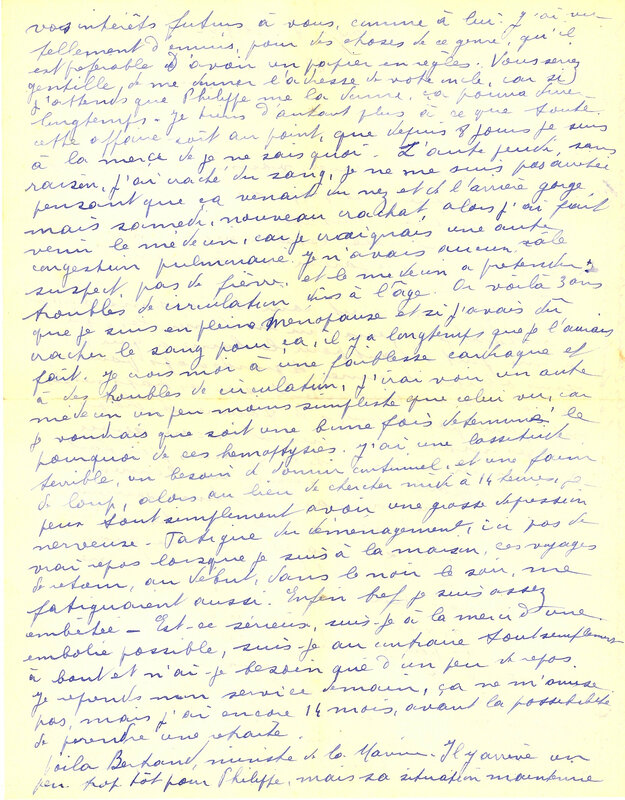 vos intérêts futurs à vous, comme à lui. J'ai eu
tellement d'ennuis, pour des choses de ce genre, qu'il
est préférable d'avoir un papier en règles. Vous seriez
gentille, de me donner l'adresse de votre oncle, car si
j'attends que Philippe me la donne, ça pourra durer
longtemps. Je tiens d'autant plus à ce que toute
cette affaire soit au point, que depuis 8 jours je suis
à la merci de je ne sais quoi. L'autre jeudi, sans
raison, j'ai craché du sang, je ne me suis pas arrêtée
pensant que ça venait du nez et de l'arrière gorge
mais samedi, nouveau crachat alors j'ai fait
venir le médecin, car je craignais une autre
congestion pulmonaire. Je n'avais aucun râle
suspect, pas de fièvre, et le médecin a prétendu :
troubles de circulation dûs à l'âge. Or voilà 3 ans
que je suis en pleine Ménopause et si j'avais dû
cracher le sang pour ça, il y a longtemps que je l'aurais
fait. Je crois moi à une faiblesse cardiaque et
à des troubles de circulation, j'irai voir un autre
médecin un peu moins simpliste que celui vu, car
je voudrais que soit une bonne fois déterminé le
pourquoi de ces hémoptysies. J'ai une lassitude
terrible, un besoin de dormir continuel, et une faim
de loup, alors au lieu de chercher midi à 14 heures, je
peux tout simplement avoir une grosse dépression
nerveuse. Fatigue du déménagement, ici pas de
vrai repos lorsque je suis à la maison, ces voyages
de retour, au début, dans le noir le soir, me
fatiguaient aussi. Enfin bref je suis assez
embêtée — Est-ce sérieux, suis-je à la merci d'une
embolie possible, suis-je au contraire tout simplement
à bout et n'ai-je besoin que d'un peu de repos.
Je reprends mon service demain, ça ne m'amuse
pas, mais j'ai encore 14 mois, avant la possibilité
de prendre une retraite.
Voila Bertrand, ministre de la Marine. Il y arrive un
peu trop tôt pour Philippe, mais sa situation maintenue